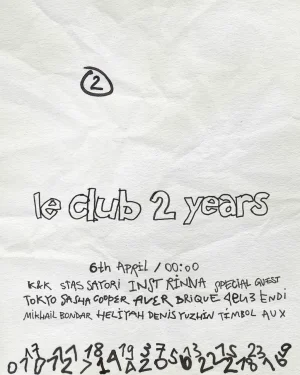 2
le club 2 years
6th April / 00:00
K&K STAS SATORI INST RINNA SPECIAL GUEST
TOKYO SASHA COOPER AVER BRIQUE 4EU3 ENDI
MIKHAIL BONDAR HELIYAH DENIS YUZHIN TIMBOL AUX